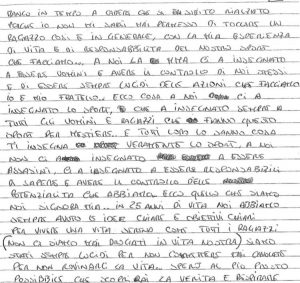 BANCO IN TEMPO A CAPIRE CHE SI È SUBITO RIALZATO
PERCHÉ IO NON MI SAREI MAI PERMESSO DI TOCCARE UN
RAGAZZO COSÌ E IN GENERALE, CON LA MIA ESPERIENZA
DI VITA E DI RESPONSABILITÀ DEL NOSTRO SPORT
CHE FACCIAMO... A NOI LA VITA CI A INSEGNATO
A ESSERE UOMINI E AVERE IL CONTROLLO DI NOI STESSI
E DI ESSERE SEMPRE LUCIDI DELLE AZIONI CHE FACCIAMO
IO E MIO FRATELLO, ECCO COSA A NOI CI A
INSEGNATO LO SPORT, E CHE A INSEGNATO SEMPRE A
TUTTI GLI UOMINI E RAGAZZI CHE FANNO QUESTO
SPORT PER MESTIERE.. E TUTTI LORO LO SANNO COSA
TI INSEGNA VERAMENTE LO SPORT, A NOI
NON CI A INSEGNATO A ESSERE
ASSASINI, CI A INSEGNATO A ESSERE RESPONSABILI
DI SAPERE E AVERE IL CONTROLLO DELLE
POTENZIALITÀ CHE ABBIAMO, ECCO QUELLO CHE SIAMO
NOI SIGNORA MIA... IN 25 ANNI DI VITA NOI ABBIAMO
SEMPRE AVUTO LE IDEE CHIARE E OBIETTIVI CHIARI
PER VIVERE UNA VITA SERENA COME TUTTI I RAGAZZI
(NON CI SIAMO MAI DROGATI IN VITA NOSTRA) SIAMO
STATI SEMPRE LUCIDI PER NON COMMETTERE
PER NON ROVINARCI LA VITA... SPERO AL PIÙ PRESTO
POSSIBILE CHE SCOPRIRAI LA VERITÀ E RESPIRARE